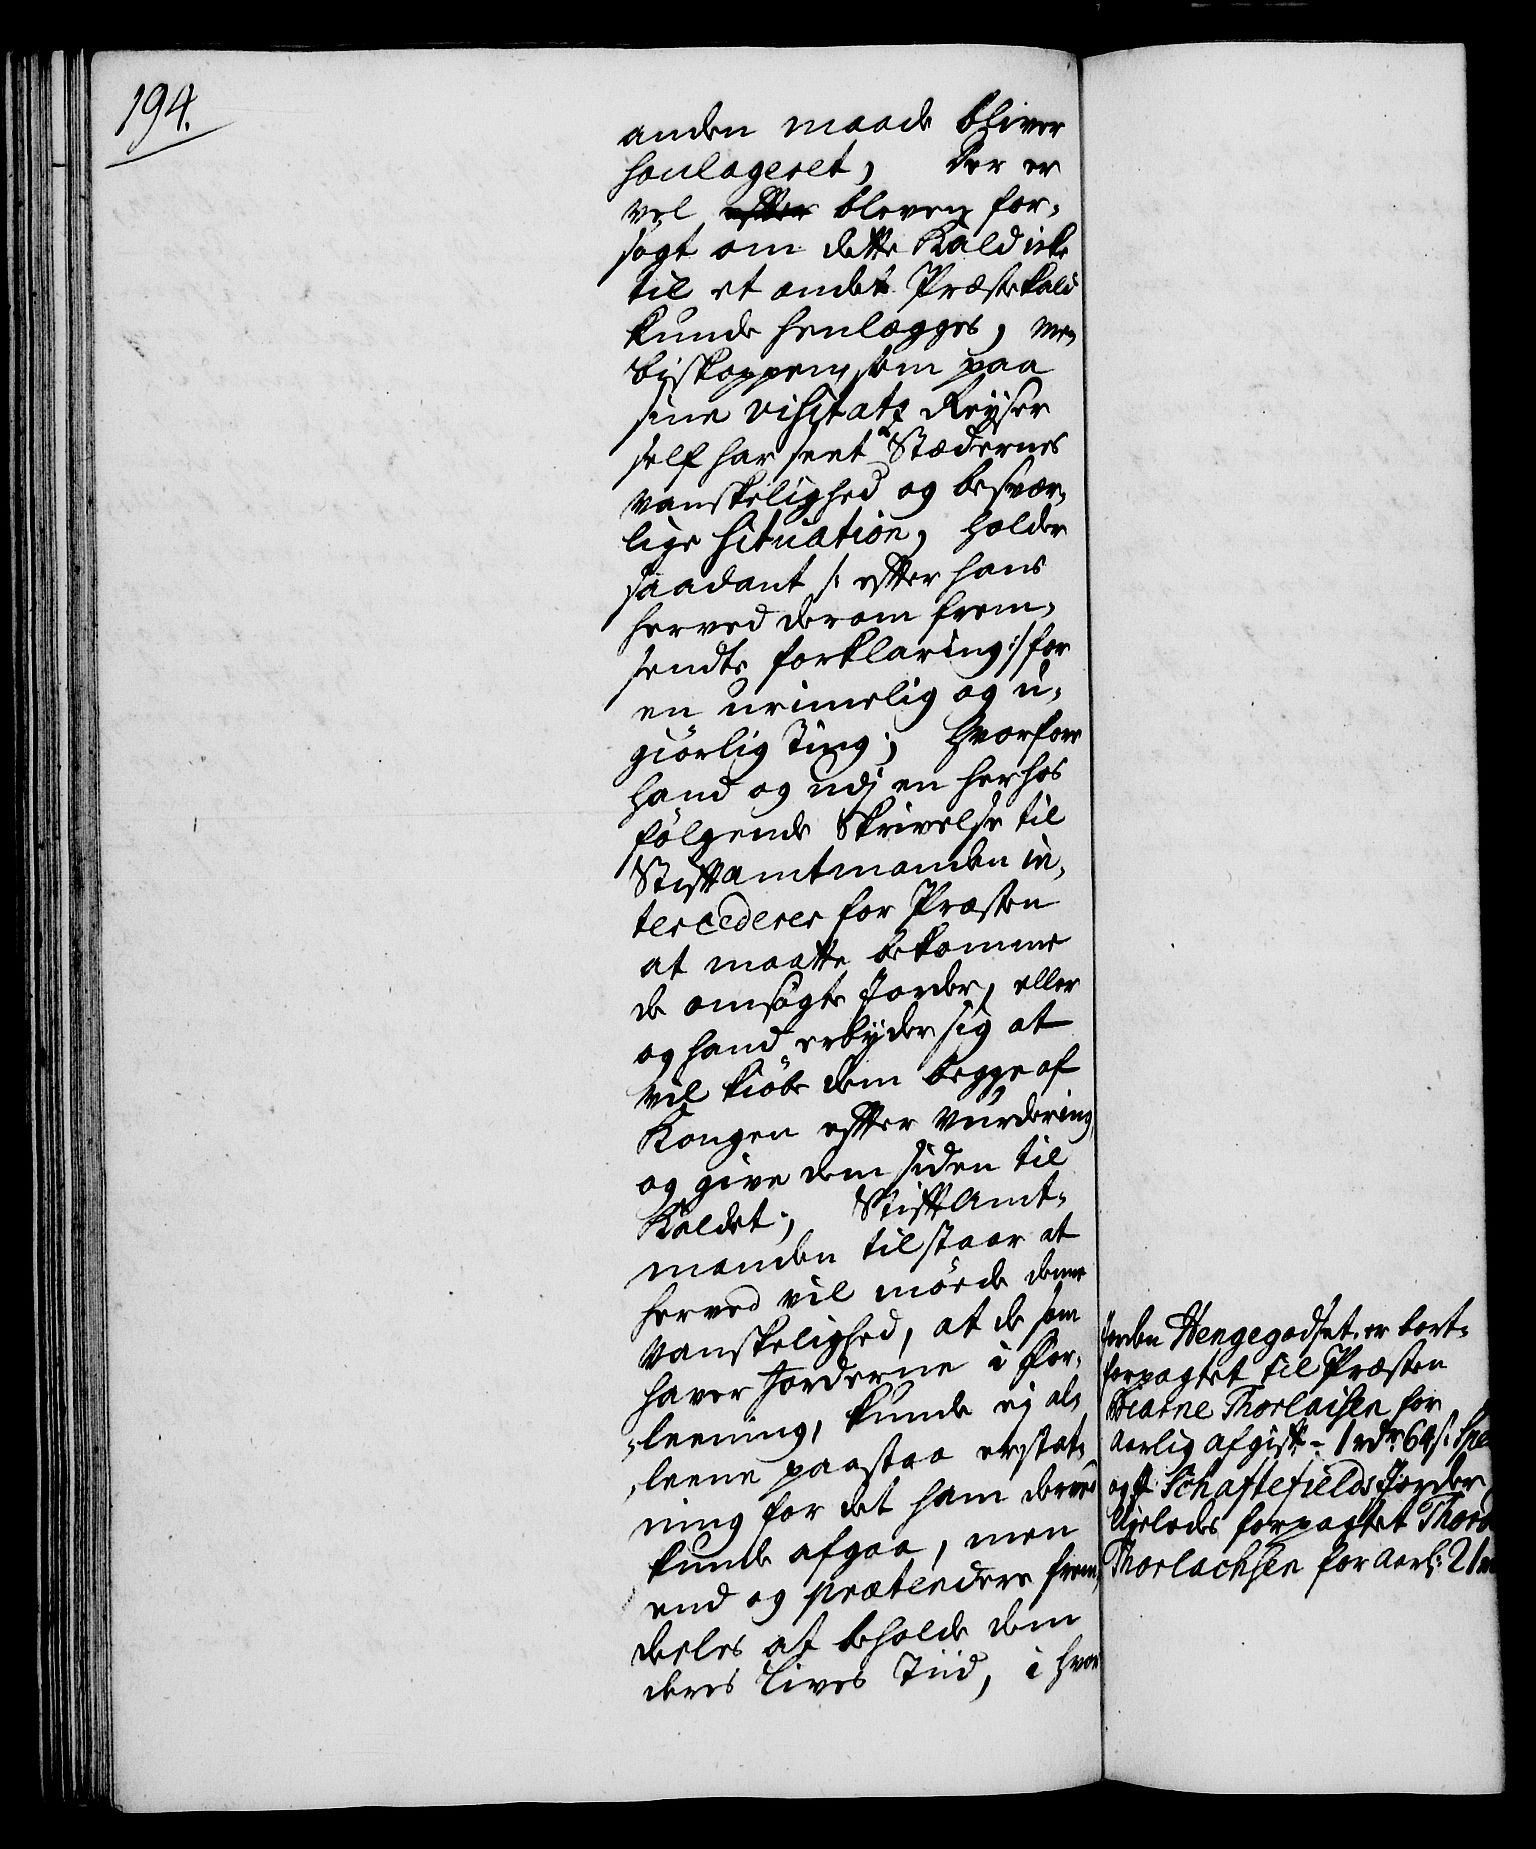 194.
anden maade bliver
soulageret, der er
vel efter bleven for-
søgt om dette Kald icke
til et andet Præstekald
kunde henlægges, men
biskoppen, som paa
sine visitatz Reyser
self har seet Stædernes
vanskelighed og besvær-
lige Situation, holder
saadant /: efter hans
herved derom frem-
sendte forklaring :/ for
en urimelig og u-
giørlig Ting; hvorfore
hand og udj en herhos
følgende Skrivelse til
Stiftamtmanden in-
tercederer for Præsten
at maatte bekomme
de omsøgte Jorder, eller
og hand erbyder sig at
vil kiøbe dem begge af
Kongen efter vurdering
og give dem siden til
Kaldet; Stiftamt-
manden tilstaar at
herved vil møede denne
vanskelighed, at de som
haver Jorderne i For-
leening, kunde ej al-
leene paastaa erstat-
ning for det ham derved
kunde afgaa, men
end og prætendere frem-
deeles at beholde dem
deres Lives Tiid, i hvor
Jorden Hengegodset er bort-
forpagtet til Præsten
Biarne Thorlaisen for
aarlig afgift - 1 rdr 64 s: Spe
og Schaftefields Jorder
ligeledes forpagtet Thor
Thorlachsen for aarl: 21